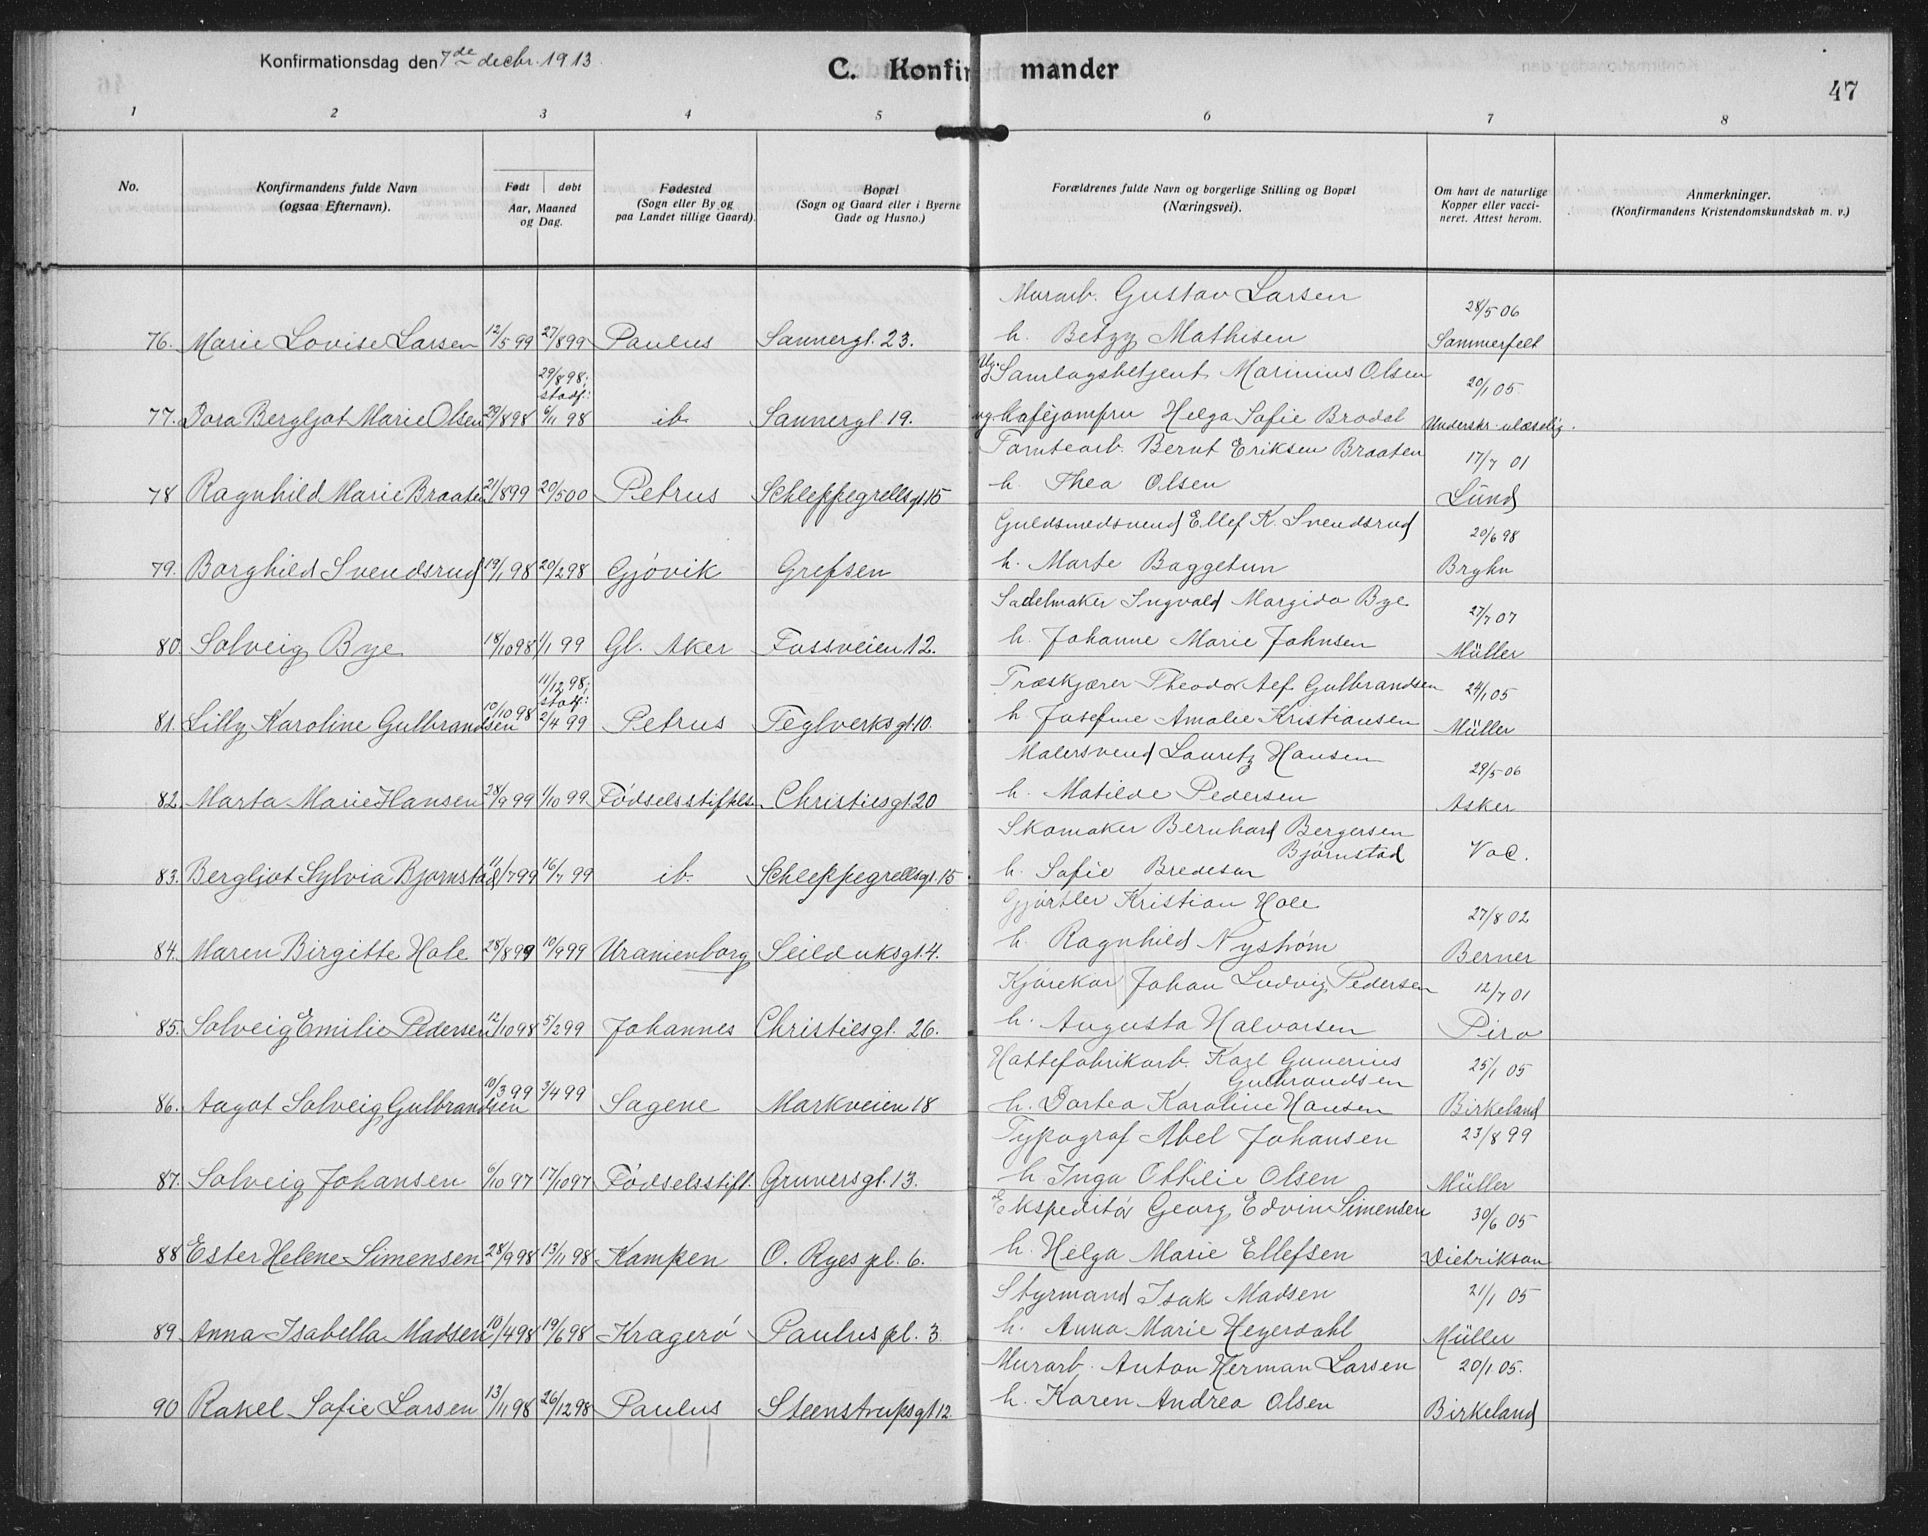 Konfirmationsdag den 7de decbr. 1913
C. Konfirmander
47
1 2 3 4 5 6 7 8
No.
Konfirmandens fulde Navn
(ogsaa Efternavn).
Født døbt
Aar, Maaned
og Dag.
Fødested
(Sogn eller By og
paa Landet tillige Gaard).
Bopæl
(Sogn og Gaard eller i Byerne
Gade og Husno.)
Forældrenes fulde Navn og borgerlige Stilling og Bopæl
(Næringsvei).
Om havt de naturlige
Kopper eller vacci-
neret. Attest herom.
Anmerkninger.
(Konfirmandens Kristendomskundskab m. v.)
Murarb. Gustav Larsen 28/5 06
76. Marie Lovise Larsen 12/5 99 27/8 99 Paulus Sannergt. 23. h. Betzy Mathisen Sommerfelt
29/8 98; stadf: Ug. Samlagsbetjent Marinius Olsen 20/1 05
77. Dora Bergljot Marie Olsen 29/8 98 6/11 98 ib Sannergt 19. ug. Kaféjomfru Helga Sofie Brodal Underskr. ulæselig.
Tomtearb. Bernt Eriksen Braaten 17/7 01
78 Ragnhild Marie Braaten 21/8 99 20/5 00 Petrus Schleppegrellsgt. 15 h. Thea Olsen Lund
Guldsmedsvend Ellef K. Svendsrud 20/6 98
79. Borghild Svendsrud 19/1 98 20/2 98 Gjøvik Grefsen h. Marte Baggetun Bryhn
Sadelmaker Ingvald Margido Bye 27/7 07
80. Solveig Bye 18/10 98 1/1 99 Gl. Aker Fossveien 12. h. Johanne Marie Johnsen Müller
11/12 98; stadf: Træskjærer Theodor Alf Gulbrandsen 24/1 05
81. Lilly Karoline Gulbrandsen 10/10 98 2/4 99 Petrus Teglverksgt. 10. h. Josefine Amalie Kristiansen Müller
Malersvend Lauritz Hansen 29/5 06
82. Marta Marie Hansen 28/9 99 1/10 99 Fødselsstiftels. Christiesgt. 20 h. Matilde Pedersen Asker
Skomaker Bernhard Bergersen
Bjørnstad Vac.
83. Bergljot Sylvia Bjørnstad 11/7 99 16/7 99 ib. Schleppegrellsgt. 15 h. Sofie Bredesen
Gjørtler Kristian Hole 27/8 02
84. Maren Birgitte Hole 28/8 99 10/9 99 Uranienborg Seilduksgt. 4. h. Ragnhild Nystrøm Berner
Kjørekar Johan Ludvig Pedersen 12/7 01
85. Solveig Emilie Pedersen 12/10 98 5/2 99 Johannes Christiesgt. 26. h. Augusta Halvorsen Piro
Hattefabrikarb. Karl Gunerius 25/1 05
Gulbrandsen
86. Aagot Solveig Gulbrandsen 10/3 99 3/4 99 Sagene Markveien 18 h. Dortea Karoline Hansen Birkeland
Typograf Abel Johansen 23/8 99
87. Solveig Johansen 6/10 97 17/10 97 Fødselsstift. Grunersgt. 13. h. Inga Othilie Olsen Müller
Ekspeditør Georg Edvin Simensen 30/6 05
88 Ester Helene Simensen 28/9 98 13/11 98 Kampen O. Ryes pl. 6. h. Helga Marie Ellefsen Dietrikson
Styrmand Isak Madsen 21/1 05
89 Anna Isabella Madsen 10/4 98 19/6 98 Kragerø Paulus pl. 3 h. Anna Marie Heyerdahl Müller
Murarb. Anton Herman Larsen 20/1 05.
90 Rakel Sofie Larsen 13/11 98 26/12 98 Paulus Steenstrupsgt 12. h. Karen Andrea Olsen Birkeland